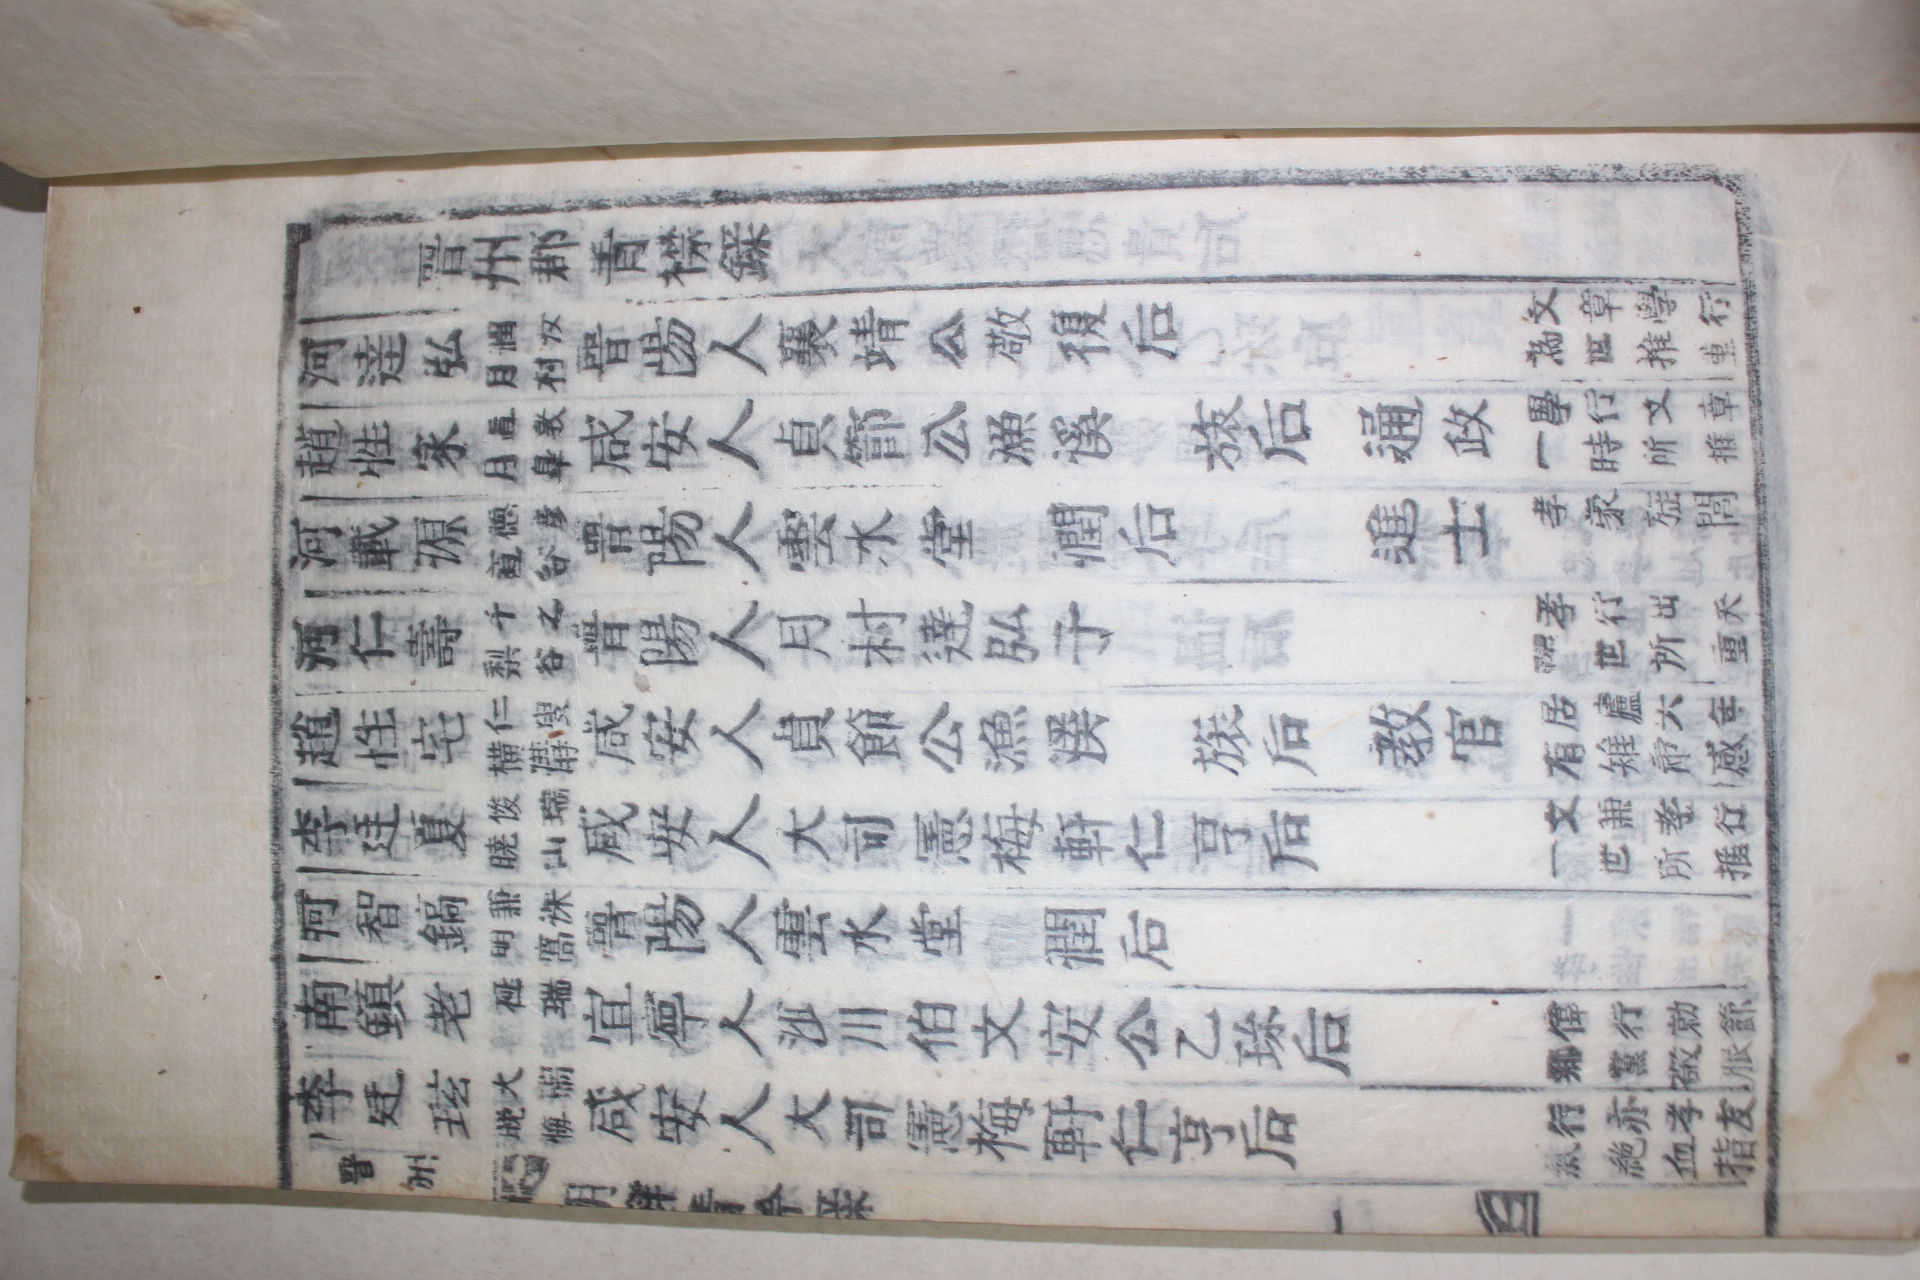 晋州郡青襟錄
河達弘 潤汝 月村 晋陽人襄靖公敬復后 文章學行 為世推重
趙性家 直教 月皐 咸安人貞節公漁溪旅后 通政 學行文章 一時所推
河載源 德彦 直谷 晋陽人雲水堂潤后 進士 孝蒙旌閭
河仁壽 千之 梨谷 晋陽人月村達弘子 孝行出天 世所重
趙性宅 仁叟 橫溝 咸安人貞節公漁溪旅后 教官 居廬六年 有雉鳥感
李廷夏 俊瑞 曉山 咸安人大司憲梅軒仁亨后 文兼孝行 一世所推
河智鎬 兼洙 明窩 晋陽人雲水堂潤后
南鎮老 極瑞 宜寧人沙川伯文安公乙珍后 偉行勅節 鄉黨敬服
李廷玹 大瑞 晚梅 咸安人大司憲梅軒仁亨后 行亦孝友 氣絶血指
晋州
青衿錄
一